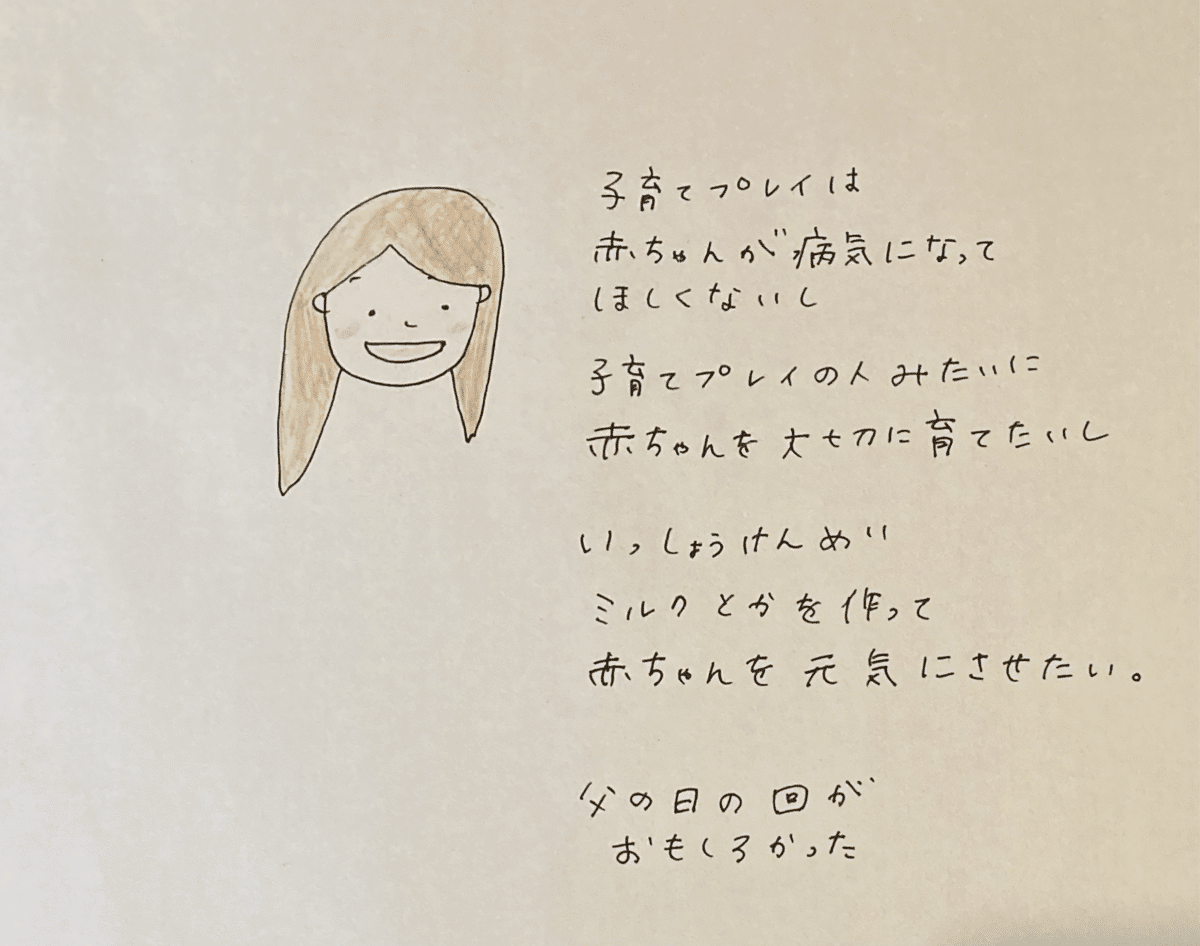 子育てプレイは
赤ちゃんが病気になって
ほしくないし
子育てプレイの人みたいに
赤ちゃんを大切に育てたいし
いっしょうけんめい
ミルクとかを作って
赤ちゃんを元気にさせたい。
父の日の回が
おもしろかった